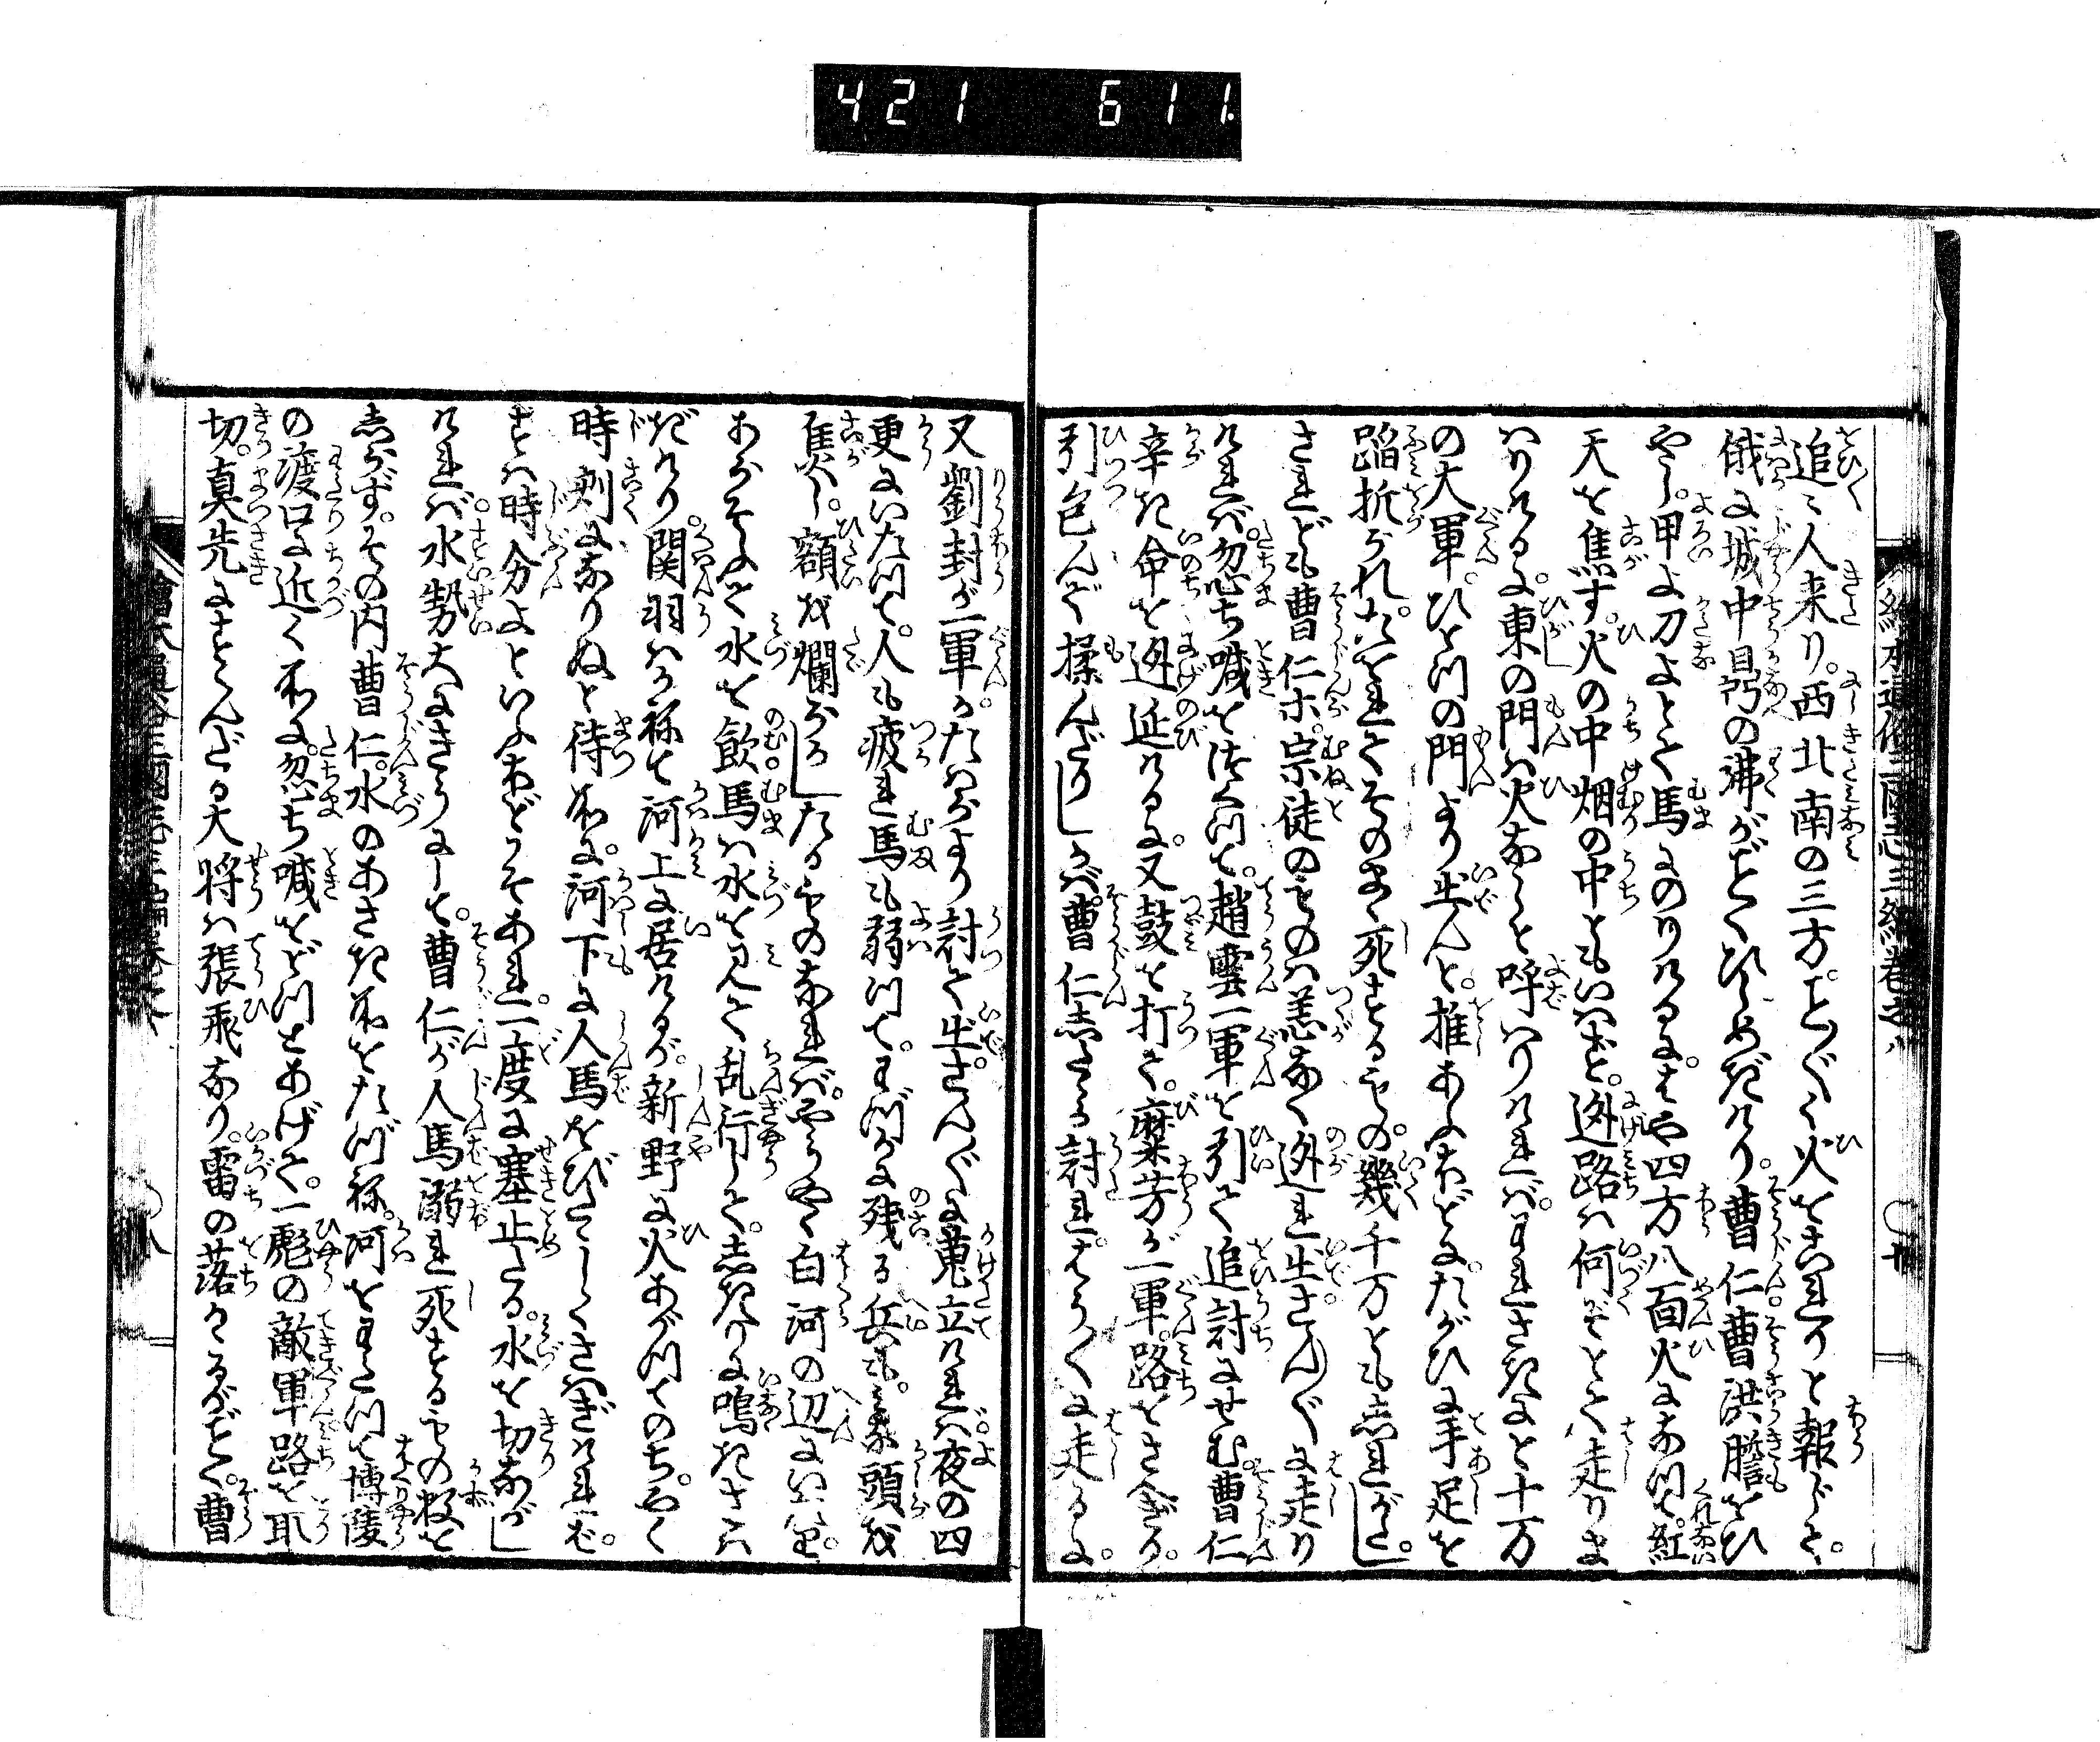 421 611.
追〻人来り。西北南の三方。ことごとく火をかけたりと報じて。
俄に城中鼎の沸がごとくひしめきけり。曹仁曹洪膽をひ
やし。甲よ刀よとて馬にのりけるに。はや四方八面火になつて。紅
天を焦す。火の中烟の中ともいはず。迯路は何くぞとて走りま
はりけるに。東の門は火なしと呼はりければ。われさきにと十万
の大軍。ひとつの門より出んと。推あふほどに。たがひに手足を
踏折られ。たをれてそのまゝ死するもの。幾千万とも志れがたし。
されども曹仁ホ。宗徒のものは恙なく迯れ出。さんざんに走り
ければ。忽ち喊をつくつて。趙雲一軍を引て追討にせむ。曹仁
辛き命を迯延けるに。又鼓を打て。糜芳が一軍。路をさへぎり。
引包んで揉んだりしかば。曹仁志たゝか討れ。やうやうに走るに。
又劉封が一軍。かたはらより討て出。さんざんに蒐立ければ。夜の四
更にいたつて。人も疲れ馬も弱つて。わづかに残る兵も。みな頭を
焦し。額を爛らしたるものなれば。やうやく白河の辺にいたり。
あらそふて水を飲。馬は水を見て乱行して。志きりに鳴きさは
ぎけり。関羽はかねて河上に居けるが。新野に火あがつてのち。やく
時刻になりぬと待所に。河下に人馬をびたゝしくさはぎければ。
すは時分よといふほどこそあれ。一度に塞止たる。水を切ながし
ければ。水勢大なきうにして。曹仁が人馬溺れ死するもの数を
志らず。その内曹仁。水のあさき所をたづね。河をわたつて博陵
の渡口に近く所に。忽ち喊をどつとあげて。一彪の敵軍路を取
切。真先にすゝんだる大将は張飛なり。雷の落かゝるがごとく。曹